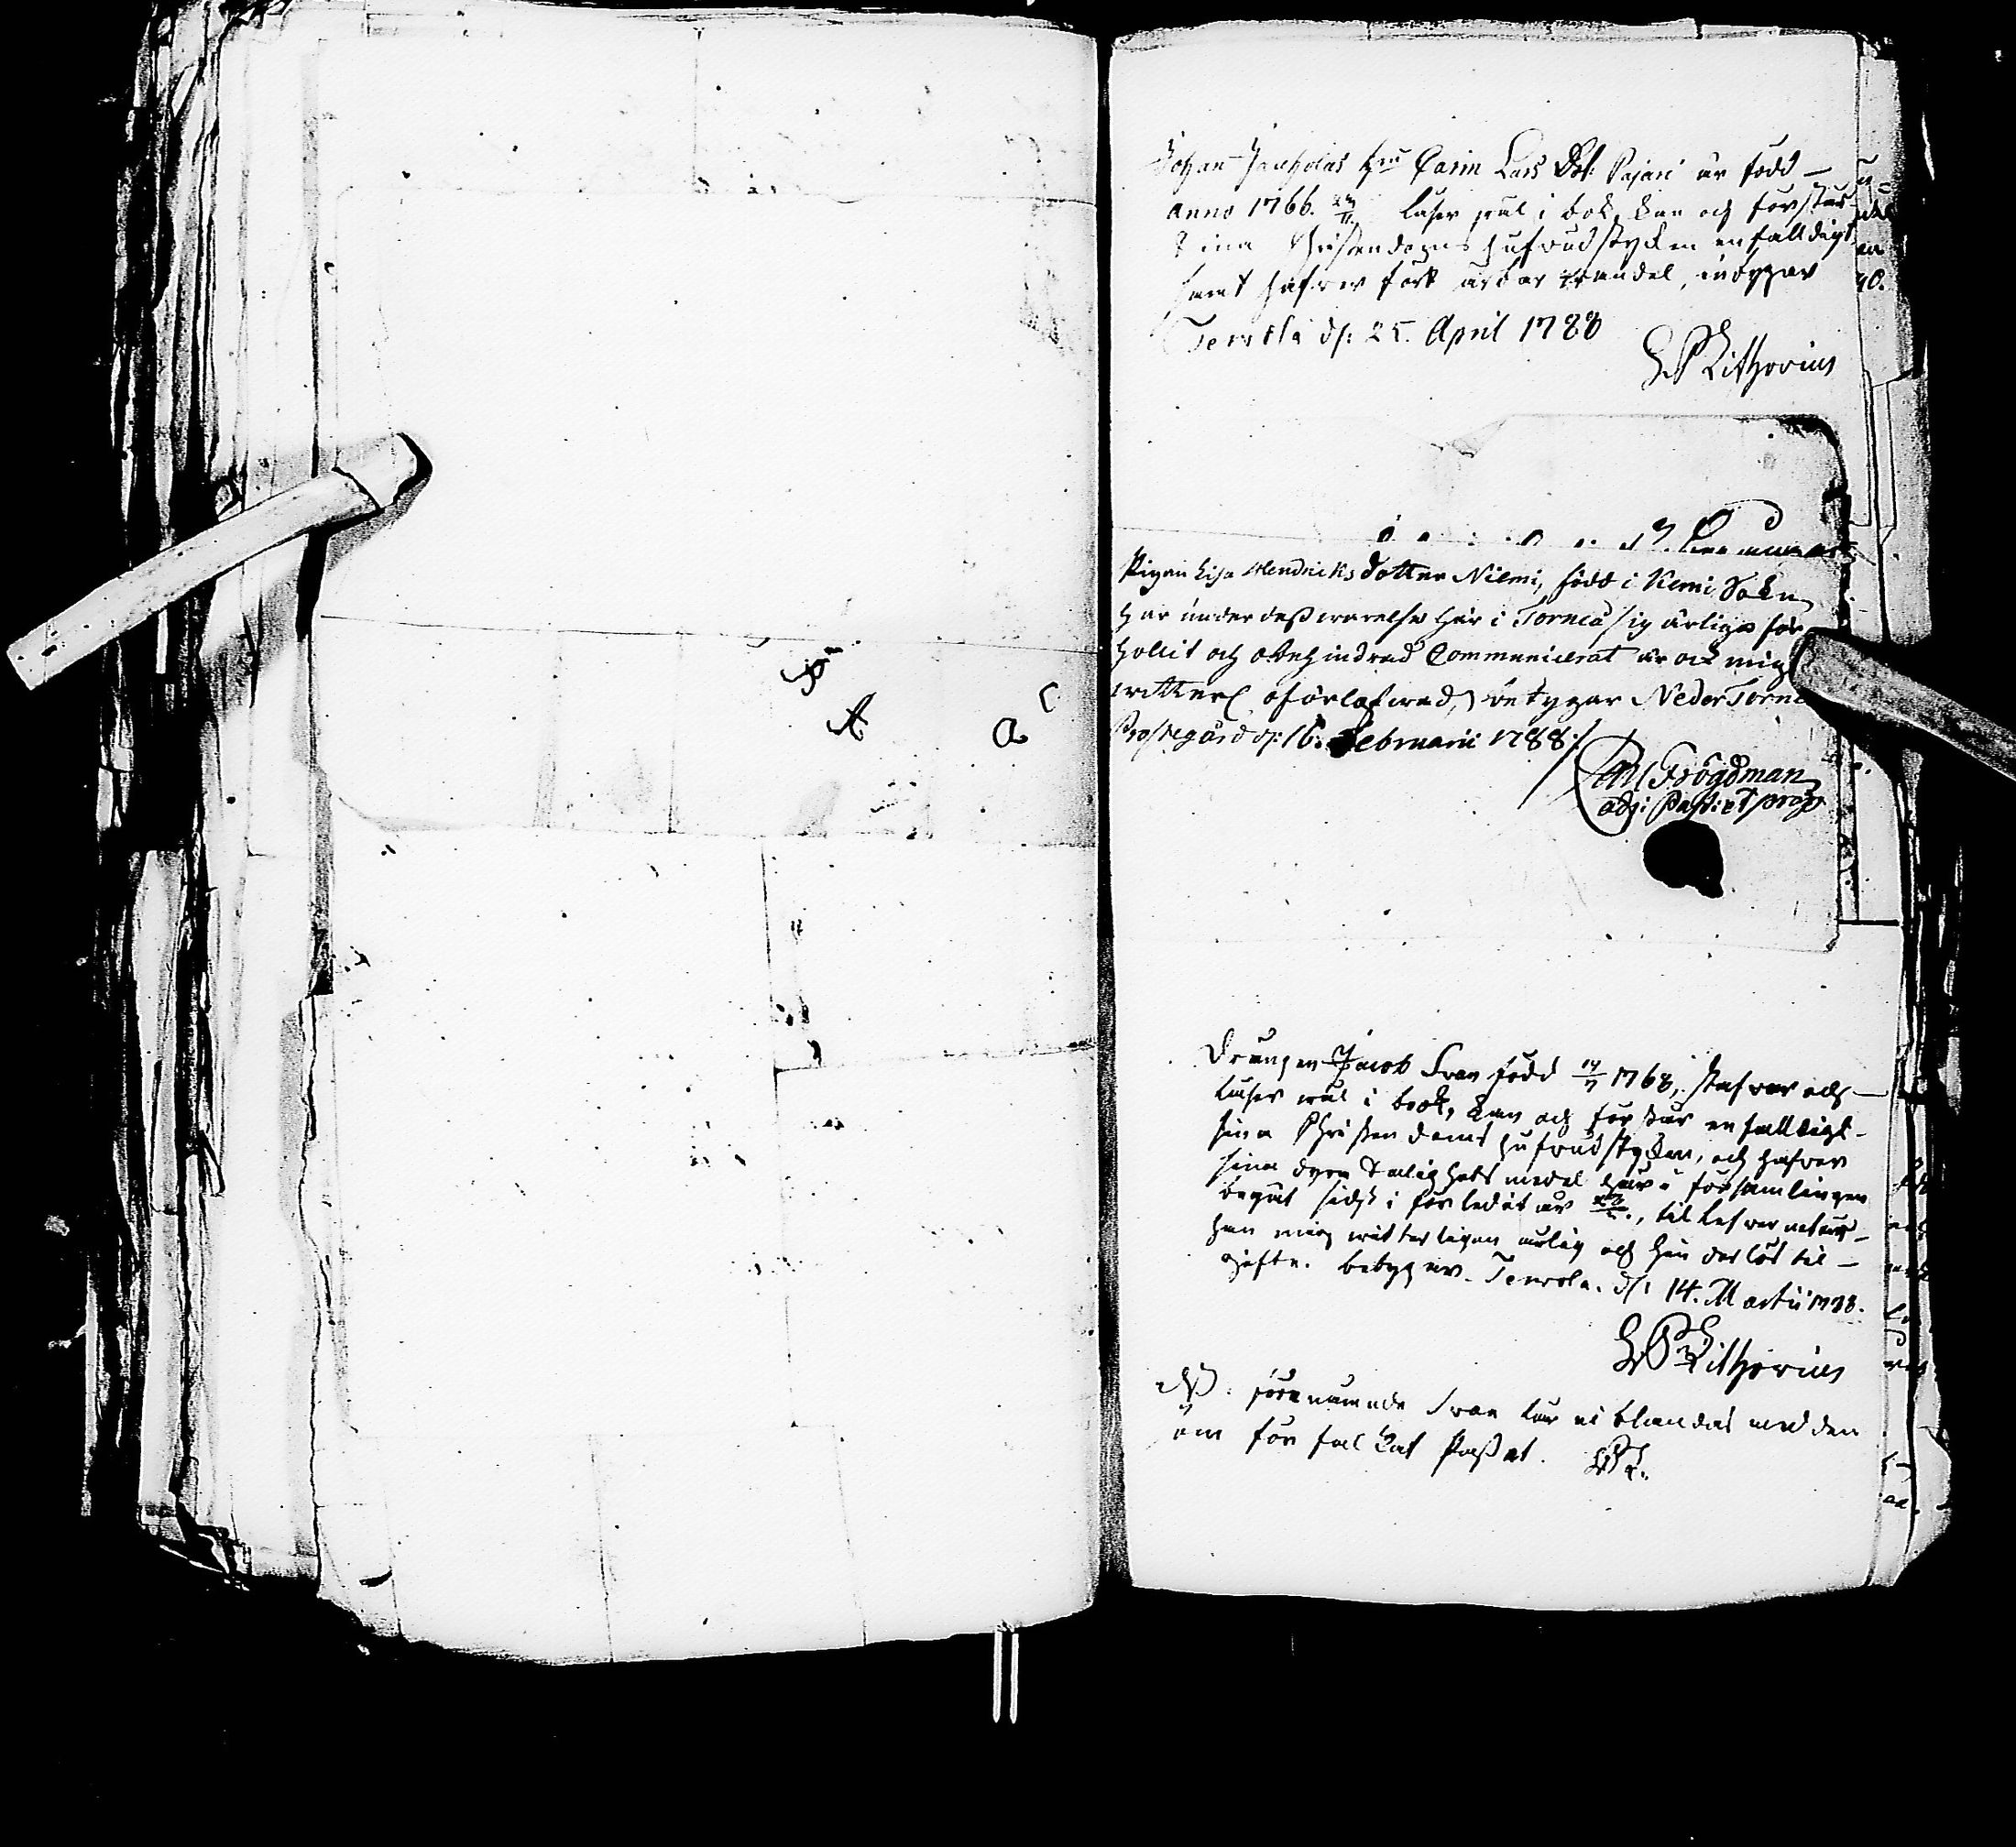 Johan Jankolas h:u Carin Lars Dot: Pajari är född
Anno 1766. 24/11 läser wäl i bok, kan och förstår
sina Christendoms hufwudstycken enfalldigt
samt hafwer fört ärbar wandel, indygar
Terwola d: 25. April 1788
Lithovius
Pigan Lisa Hendricks dotter Niemi, född i Kemi Sokn
har under dess warelse här i Torneå sig ärliga för-
hollit och obehindrad Communicerat är ock mig
witterl. oförlofwad, betygar Neder Torne
Prostegård d: 16. Februarii 1788.
Carl Frögdman
adj: Past: et præp
Drängen Jacob Swan född 14/7 1768, stafwar och
läser wäl i book, kan och förstår enfalldigt
sina Christendoms hufwudstycken, och hafwer
sina dyra Salighets medel här i församlingen
begåt sidst i förledit år, til lefwernet är
han mig witterligen ärlig och hinderlös til
gifte. betygar Terwola. d: 14. Martii 1788.
Lithovius
förenämnde Swan lär ei blandas med den
om förfalskat Passet.